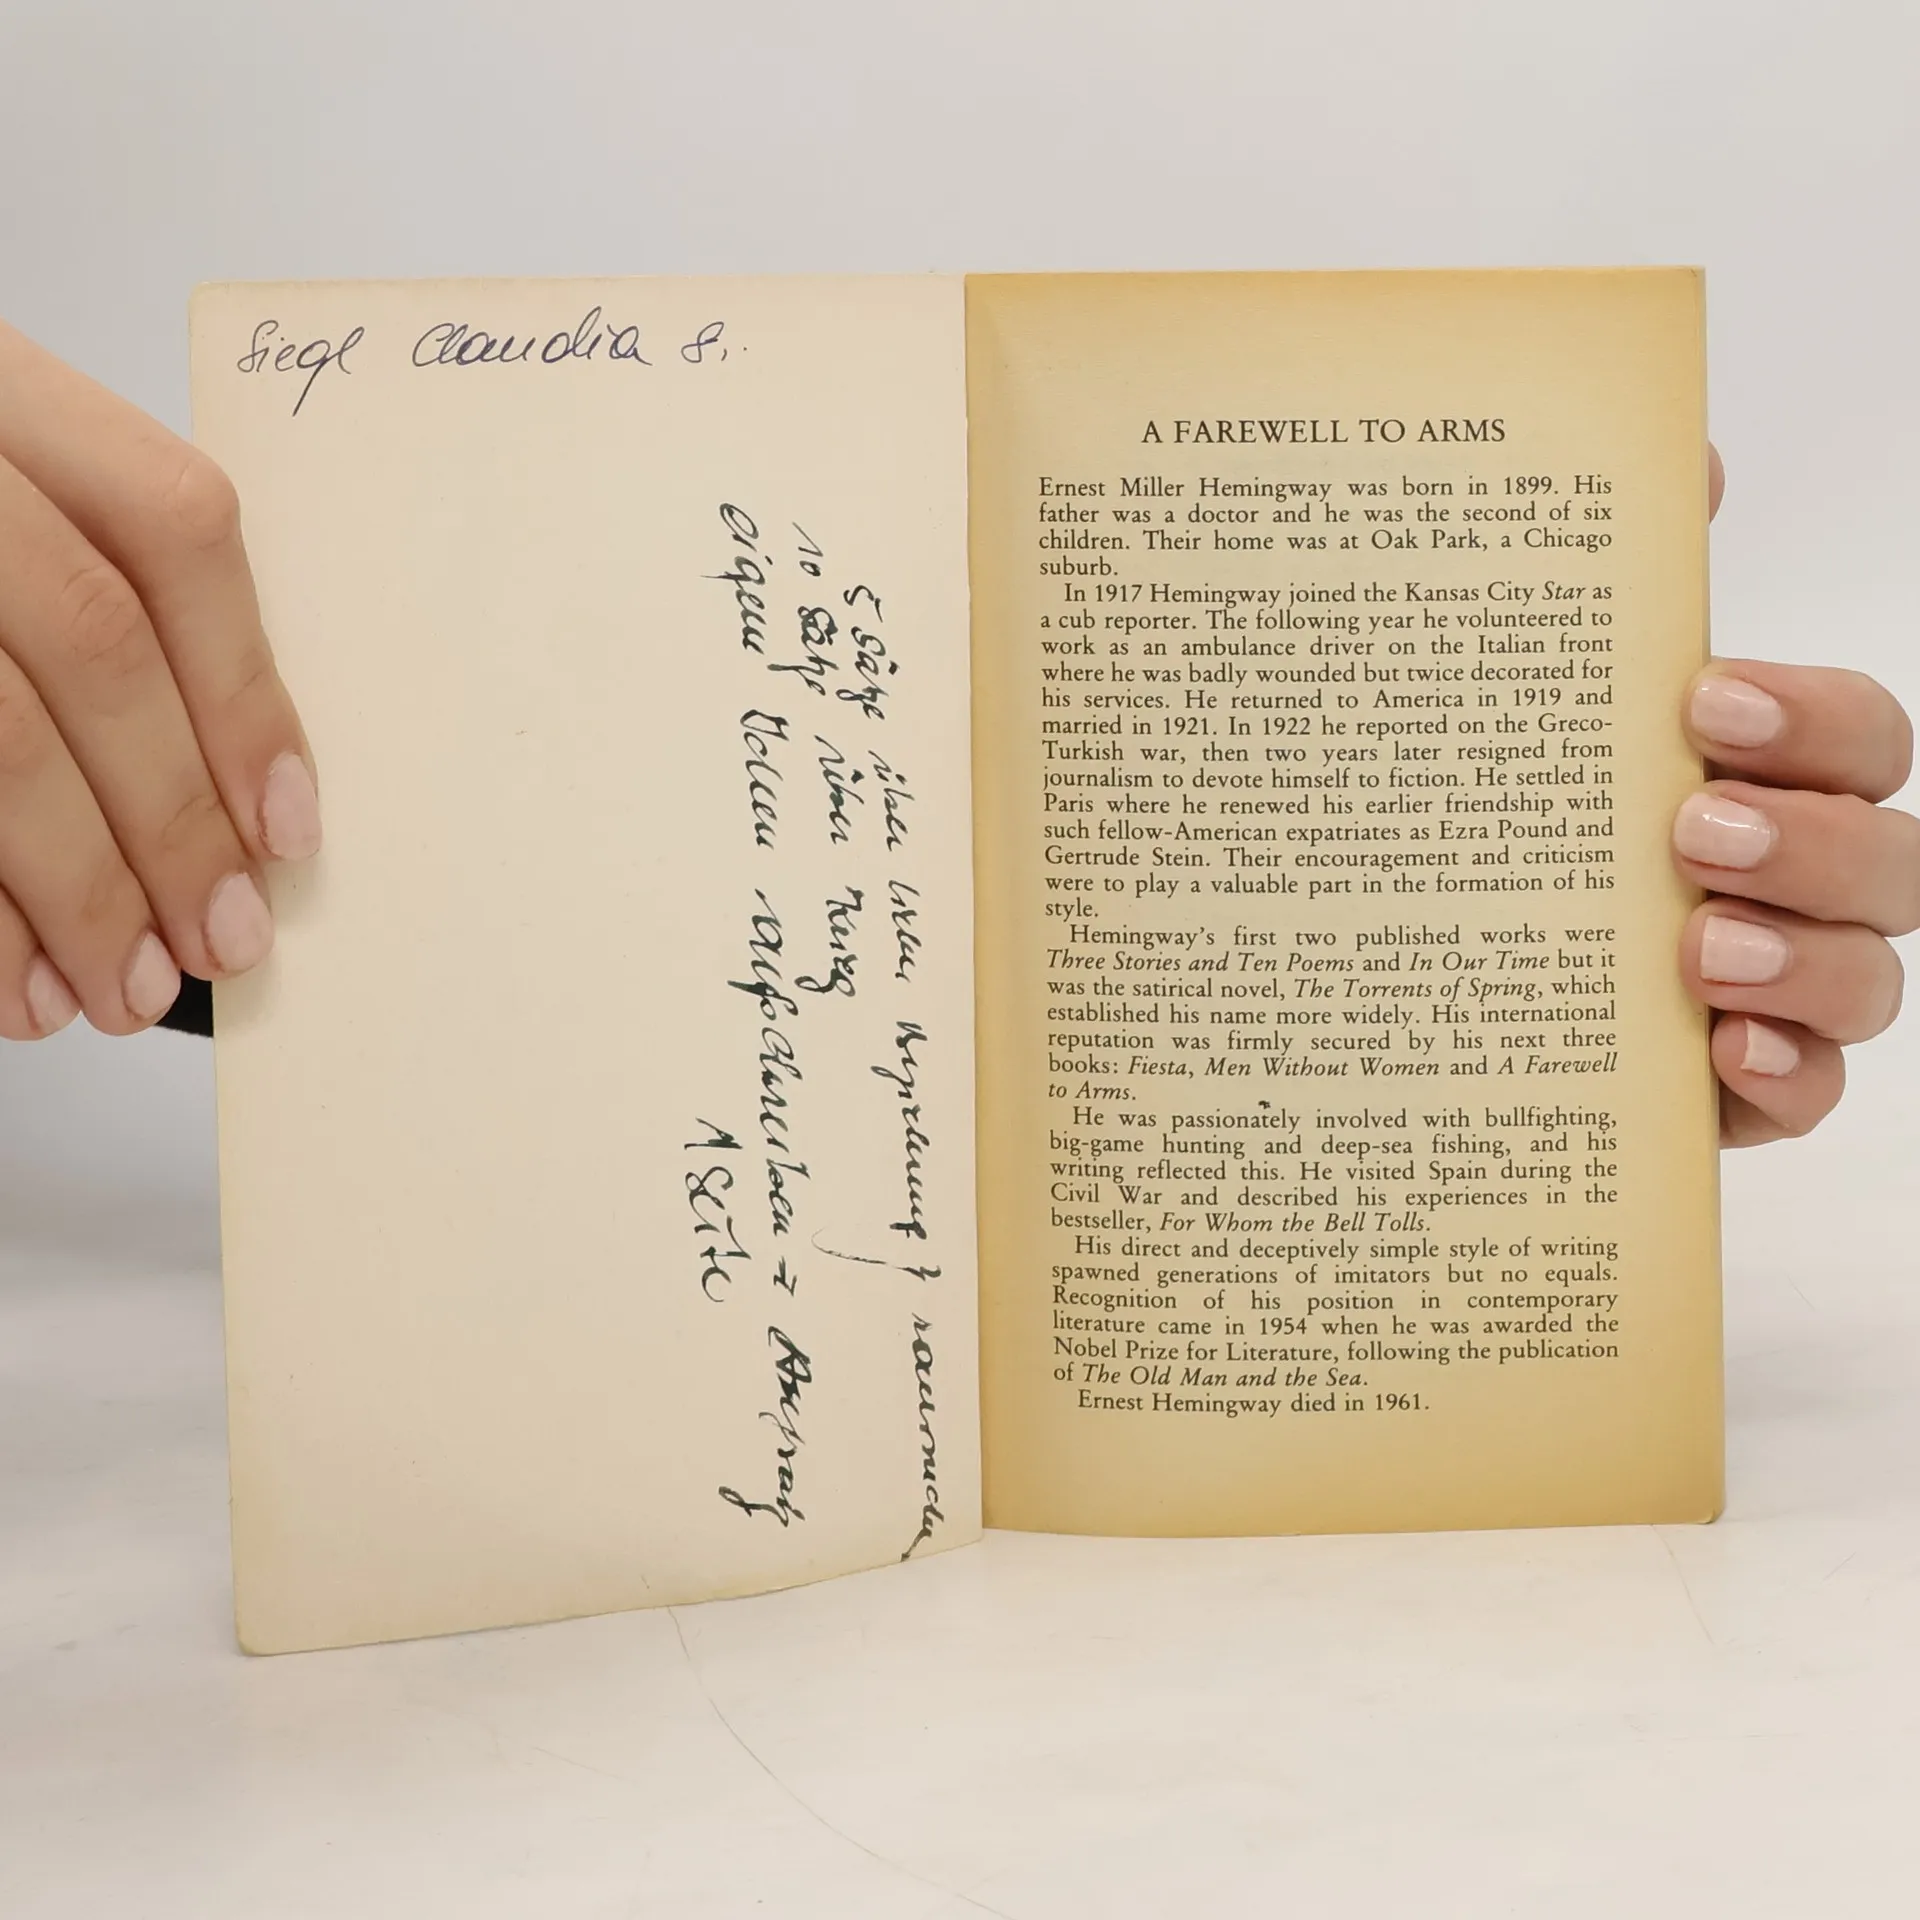 Siegl Claudia 8.
5 Sätze über lieben
10 Sätze über Krieg
eigene Ideen aufschreiben
1 Seite
A FAREWELL TO ARMS
Ernest Miller Hemingway was born in 1899. His
father was a doctor and he was the second of six
children. Their home was at Oak Park, a Chicago
suburb.
In 1917 Hemingway joined the Kansas City Star as
a cub reporter. The following year he volunteered to
work as an ambulance driver on the Italian front
where he was badly wounded but twice decorated for
his services. He returned to America in 1919 and
married in 1921. In 1922 he reported on the Greco-
Turkish war, then two years later resigned from
journalism to devote himself to fiction. He settled in
Paris where he renewed his earlier friendship with
such fellow-American expatriates as Ezra Pound and
Gertrude Stein. Their encouragement and criticism
were to play a valuable part in the formation of his
style.
Hemingway's first two published works were
Three Stories and Ten Poems and In Our Time but it
was the satirical novel, The Torrents of Spring, which
established his name more widely. His international
reputation was firmly secured by his next three
books: Fiesta, Men Without Women and A Farewell
to Arms.
He was passionately involved with bullfighting,
big-game hunting and deep-sea fishing, and his
writing reflected this. He visited Spain during the
Civil War and described his experiences in the
bestseller, For Whom the Bell Tolls.
His direct and deceptively simple style of writing
spawned generations of imitators but no equals.
Recognition of his position in contemporary
literature came in 1954 when he was awarded the
Nobel Prize for Literature, following the publication
of The Old Man and the Sea.
Ernest Hemingway died in 1961.